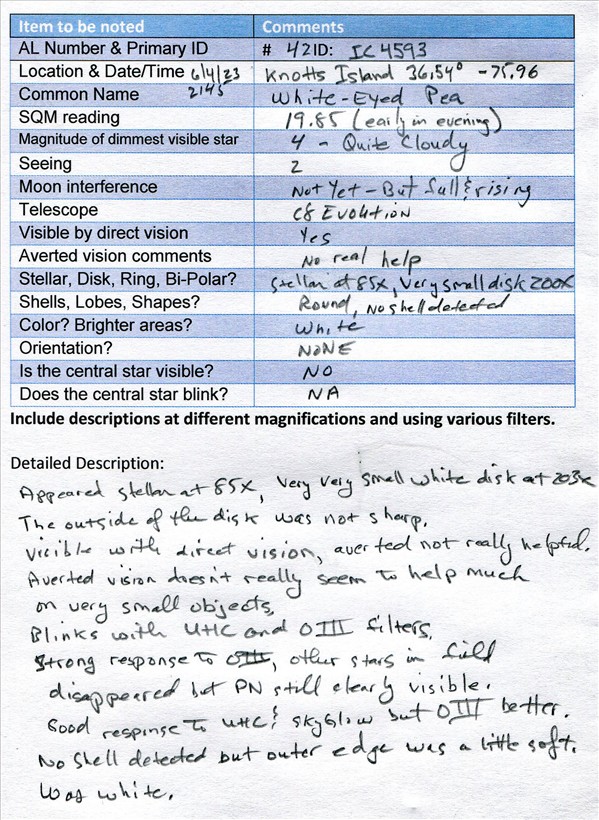 Item to be noted Comments
AL Number & Primary ID # 42 ID: IC 4593
Location & Date/Time 6/4/23 2145 Knotts Island 36.54° -75.96
Common Name White-Eyed Pea
SQM reading 19.85 (early in evening)
Magnitude of dimmest visible star 4 - Quite Cloudy
Seeing 2
Moon interference Not Yet - But full & rising
Telescope C8 Evolution
Visible by direct vision Yes
Averted vision comments No real help
Stellar, Disk, Ring, Bi-Polar? Stellar at 85x, Very small disk 200x
Shells, Lobes, Shapes? Round, No shell detected
Color? Brighter areas? White
Orientation? NONE
Is the central star visible? NO
Does the central star blink? NA
Include descriptions at different magnifications and using various filters.
Detailed Description:
Appeared stellar at 85x, Very very small white disk at 203x
The outside of the disk was not sharp.
Visible with direct vision, averted not really helpful.
Averted vision doesn't really seem to help much
on very small objects.
Blinks with UHC and OIII filters.
Strong response to OIII, other stars in field
disappeared but PN still clearly visible.
Good response to UHC & skyglow but OIII better.
No shell detected but outer edge was a little soft.
Was white.